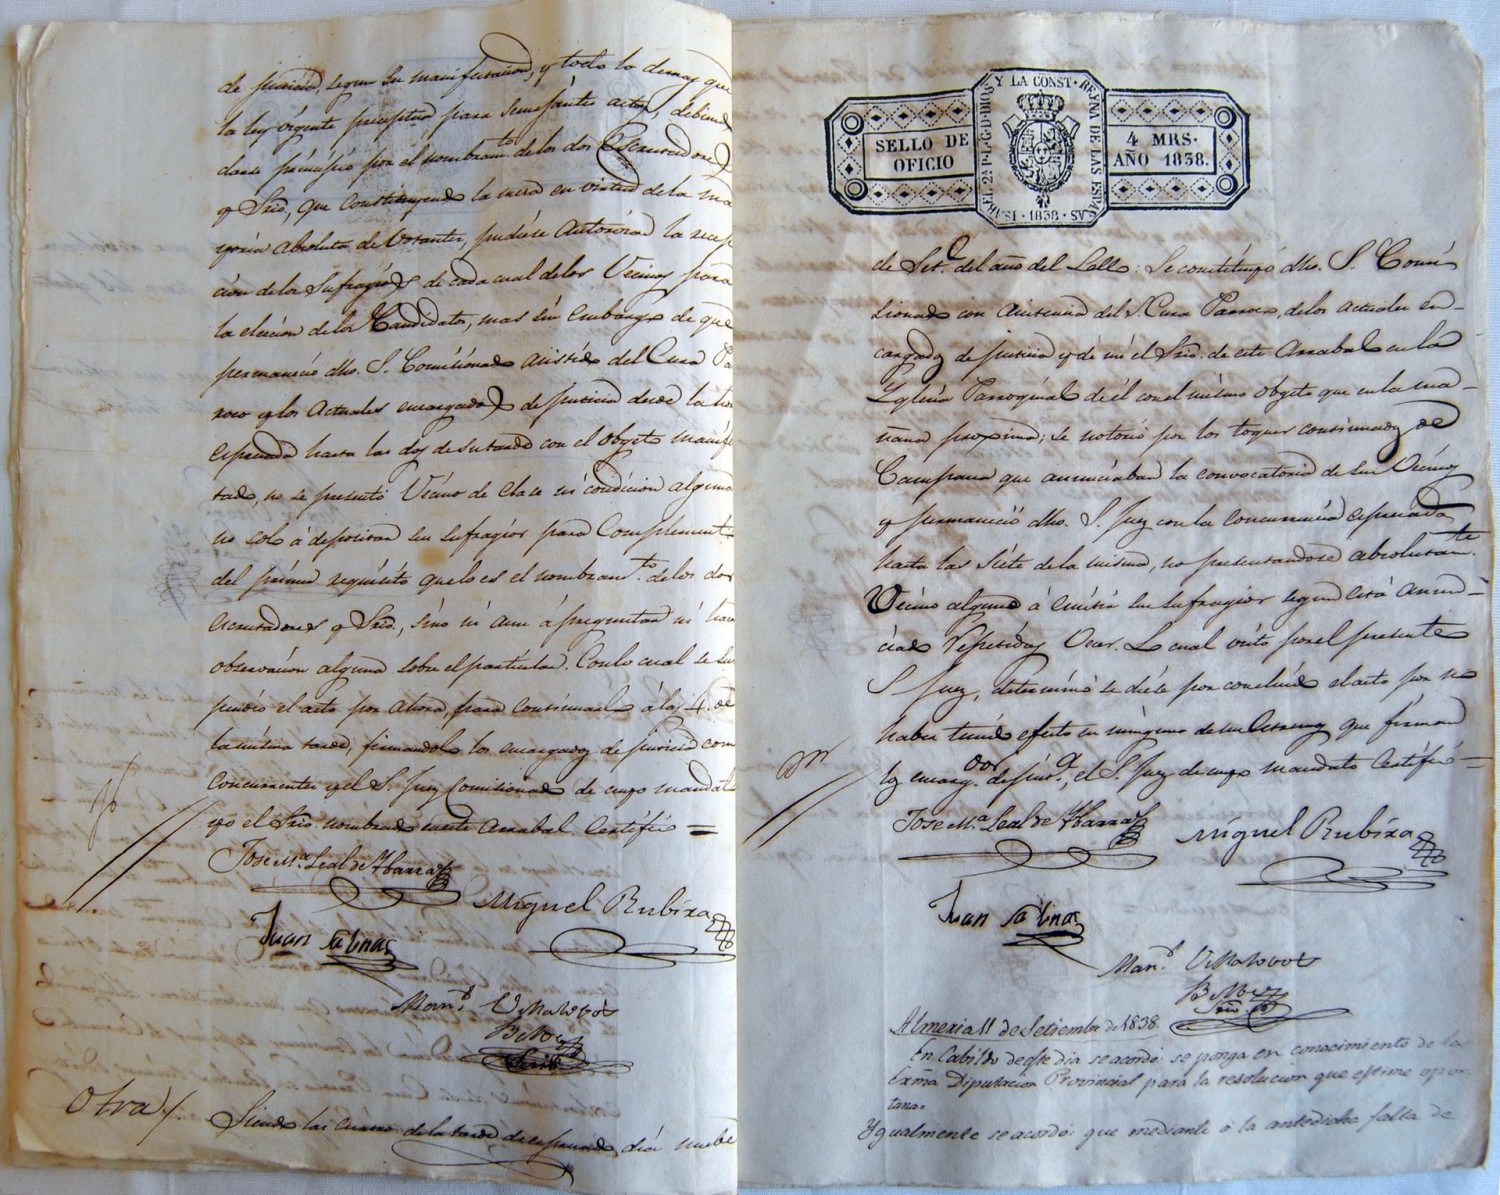 de justicia, segun su manifestacion, y todo lo demas que
la ley vigente preceptua para semejantes actos, debiendo
darse principio por el nombram.to de los dos Escrutadores
y Srio, que constituyendo la mesa en virtud de la ma
yoria absoluta de votantes, pudiese autorizar la recep
cion de los sufragios de cada cual de los Vecinos para
la eleccion de los Candidatos, mas sin embargo de que
permanecio dho. S. Comisionado asistido del Cura Pa
rroco y los actuales encargados de justicia desde la hora
espresada hasta las dos de su tarde con el obgeto manifes
tado, no se presentó Vecino de clase ni condicion alguna
no solo á depositar sus sufragios para complemento
del primer requisito que lo es el nombram.to de los dos
escrutadores y Srio., sino ni aun á preguntar ni hacer
observacion alguna sobre el particular. Con lo cual se sus
pendió el acto por ahora, para continuarlo á las 4. de
la misma tarde, firmandolo los encargados de justicia con
currentes y el S. Juez Comisionado de cuyo mandato
yo el Srio. nombrado en este Arrabal Certifico =
Jose M.a Leal de Ybarra
Miguel Rubira
Juan Salinas
Man.l Villalovos
Srio
Otra/.
Siendo las cuatro de la tarde de espresado dia nueve
SELLO DE OFICIO
ISABEL 2ª P. L. G. D. DIOS Y LA CONST. REYNA DE LAS ESPAÑAS
1838
4 MRS.
AÑO 1838.
de Set.e del año del Sello: Se constituyó dho. S. Comi
sionado con asistencia del S. Cura Parroco, de los actuales en-
cargados de justicia y de mi el Srio. de este Arrabal en la
Yglesia Parroquial de él con el mismo obgeto que en la ma-
ñana proxima; se notorió por los toques continuados de
Campana que anunciaban la convocatoria de sus Vecinos
y permaneció dho. S. Juez con la concurrencia espresada
hasta las siete de la misma, no presentandose absolutam.te
Vecino alguno á emitir sus sufragios segun está anun-
ciado repetidas veces. Lo cual visto por el presente
S. Juez, determinó se diese por concluido el acto por no
haber tenido efecto en ninguno de sus estremos que firman
los encarg.dos de just.a, el S. Juez de cuyo mandato Certifico=
Jose M.a Leal de Ybarra
Miguel Rubira
Juan Salinas
Man.l Villalovos
Srio.
Almeria 11 de Setiembre de 1838.
En Cabildo de este dia se acordó: se ponga en conocimiento de la
Exma Diputacion Provincial para la resolucion que estime opor
tuna=
Ygualmente se acordó: que mediante á la antedicha falta de